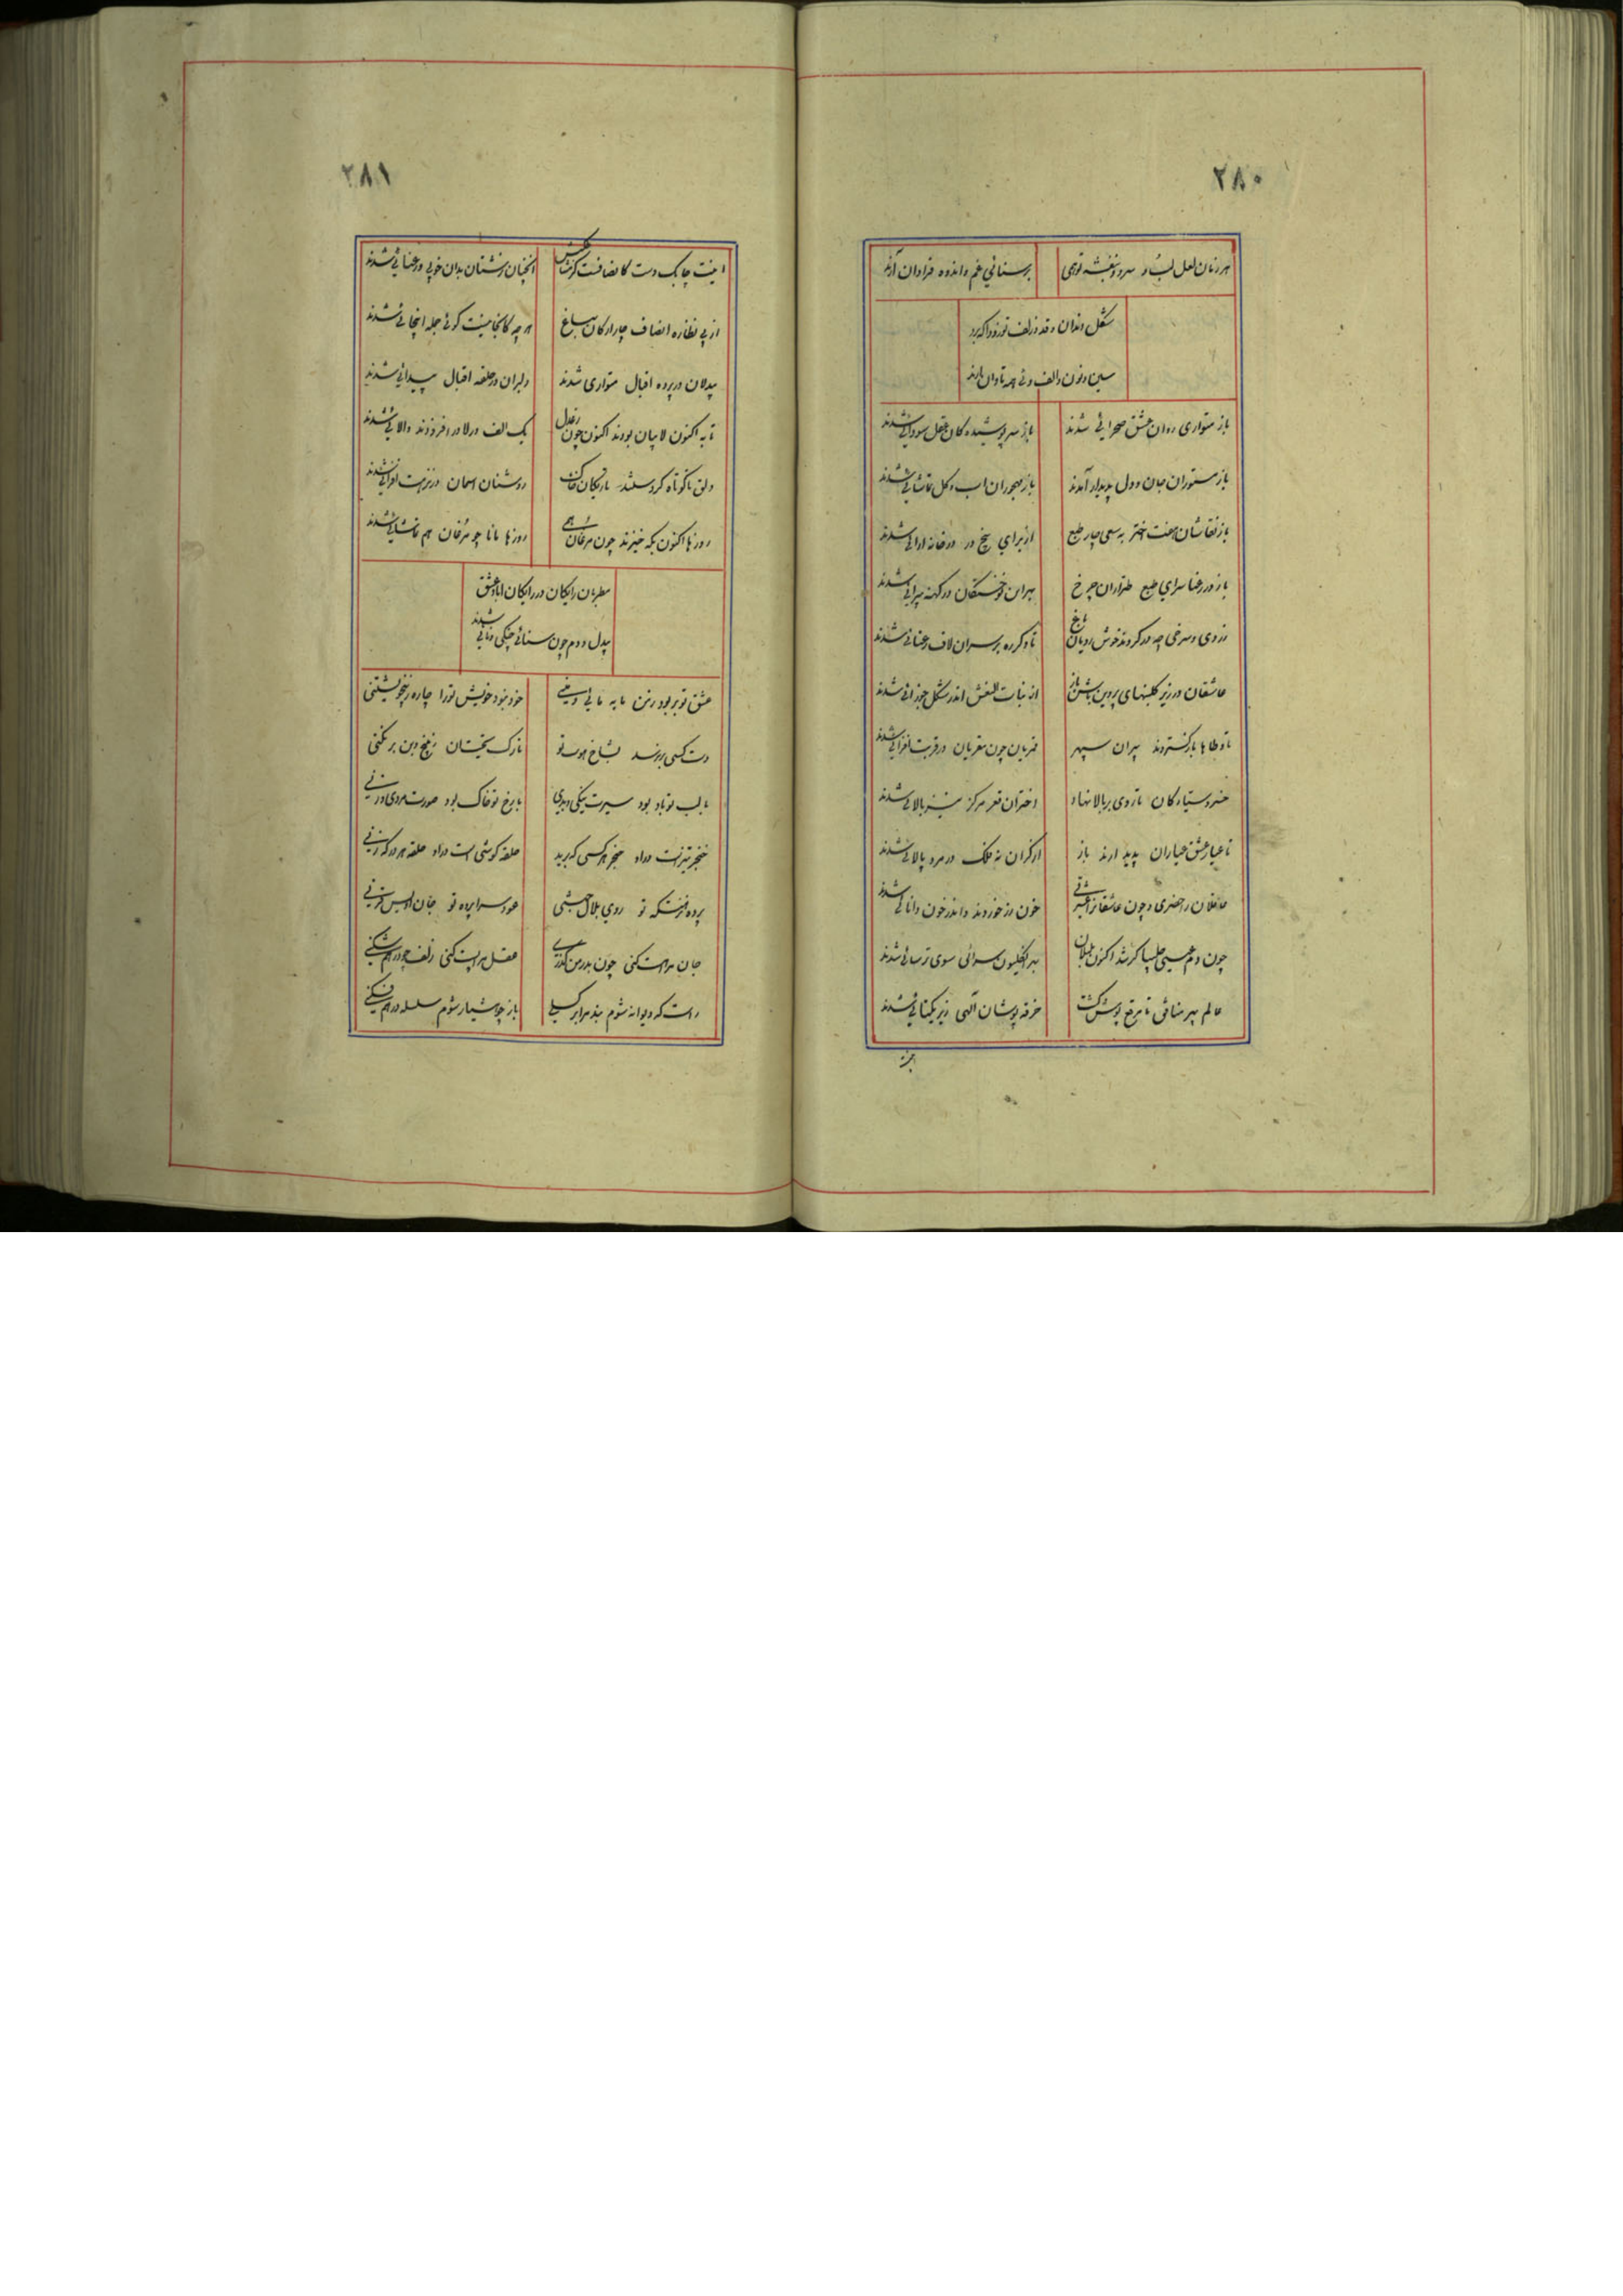 ۲۸۰
هر زمان لعل لب و سرو بنفشه توهمی برسنائی غم و اندوه فراوان آرند
شکل دندان و قد و زلف تو زودا که برد
سین و نون و الف و ئی چه تاوان آرند
باز متواری روان عشق صحرائی شدند باز سرپوشیده کان عقل سودائی شدند
باز مستوران جان و دل پدیدار آمدند باز مهجوران اب و کل تماشائی شدند
باز نقاشان هفت اختر به سعی چار طبع از برای پنج در خانه ارائی شدند
باز در رعنا سرای طبع طراران چرخ بهران خستکان در کهنه پیرائی شدند
زردی و سرخی چه در کردند خوش رویان باغ تا دکر ره برسران لاف رعنائی شدند
عاشقان در زیر کلبنهای پروین باش باز از بنات النعش اندر شکل جوزائی شدند
تا وطاها بازکستردند پیران سپهر قمریان چون مقریان در قربت افزائی شدند
خسرو سیارکان تا روی بر بالا نهاد اختران قعر مرکز نیز بالائی شدند
تا عیار عشق عیاران پدید ارند باز زرکران نه فلک در مرد پالائی شدند
عاقلان را خون رز خوردند و اندر خون دانائی شدند
چون دم عیسی چلیپا کر شد اکنون بلبلان بهر انکلیون سرائی سوی ترسائی شدند
عالم پیر منافق تا مرقع پوش کشت خرقه پوشان الهی زیر یکتائی شدند
اینت
۲۸۱
اینت چابک دست کانصافت کز نقاش انچنان زشتان بدان خوبی و رعنائی شدند
از پی نظاره انصاف چار ارکان بباغ هر چه کانجا نیست کوئی جمله اینجائی شدند
بیدلان در پرده اقبال متواری شدند دلبران در حلقه اقبال پیدائی شدند
تا به اکنون لا بیان بودند اکنون چون یک الف در لا در افزودند والائی شدند
دلق تا کوتاه کردستند تاریکان خاک روشنان اسمان در نزهت افزائی شدند
روزها اکنون بکه خیزند چون مرغان همی روزها مانا چو مرغان هم تماشائی شدند
مطربان رایکان در رایکان اباد عشق
بیدل و دم چون سنائی چنکی و نائی شدند
عشق تو بربود ز من مایه مائی و منی خود نبود خویش تو را چاره ز بیخویشتنی
دست کسی برنرسد بشاخ هویت تو تا رک نیختیان ز بیخ و بن برنکنی
با لب تو باد بود سیرت نیکی و بدی با رخ تو خاک بود صورت مردی و زنی
خنجر تیزت دراد حنجر هر کسی که برید حلقه کوشی است دراد حلقه هر در که زنی
پرده فرستکه تو روی بلال حبشی هود سراپرده تو جان اویس قرنی
جان مراست کنی چون بدر من کذری عقل مراپست کنی زلف چو درهم شکنی
راست که دیوانه شوم بند مرا برکسلی باز چو هشیار شوم سلسله در هم فکنی